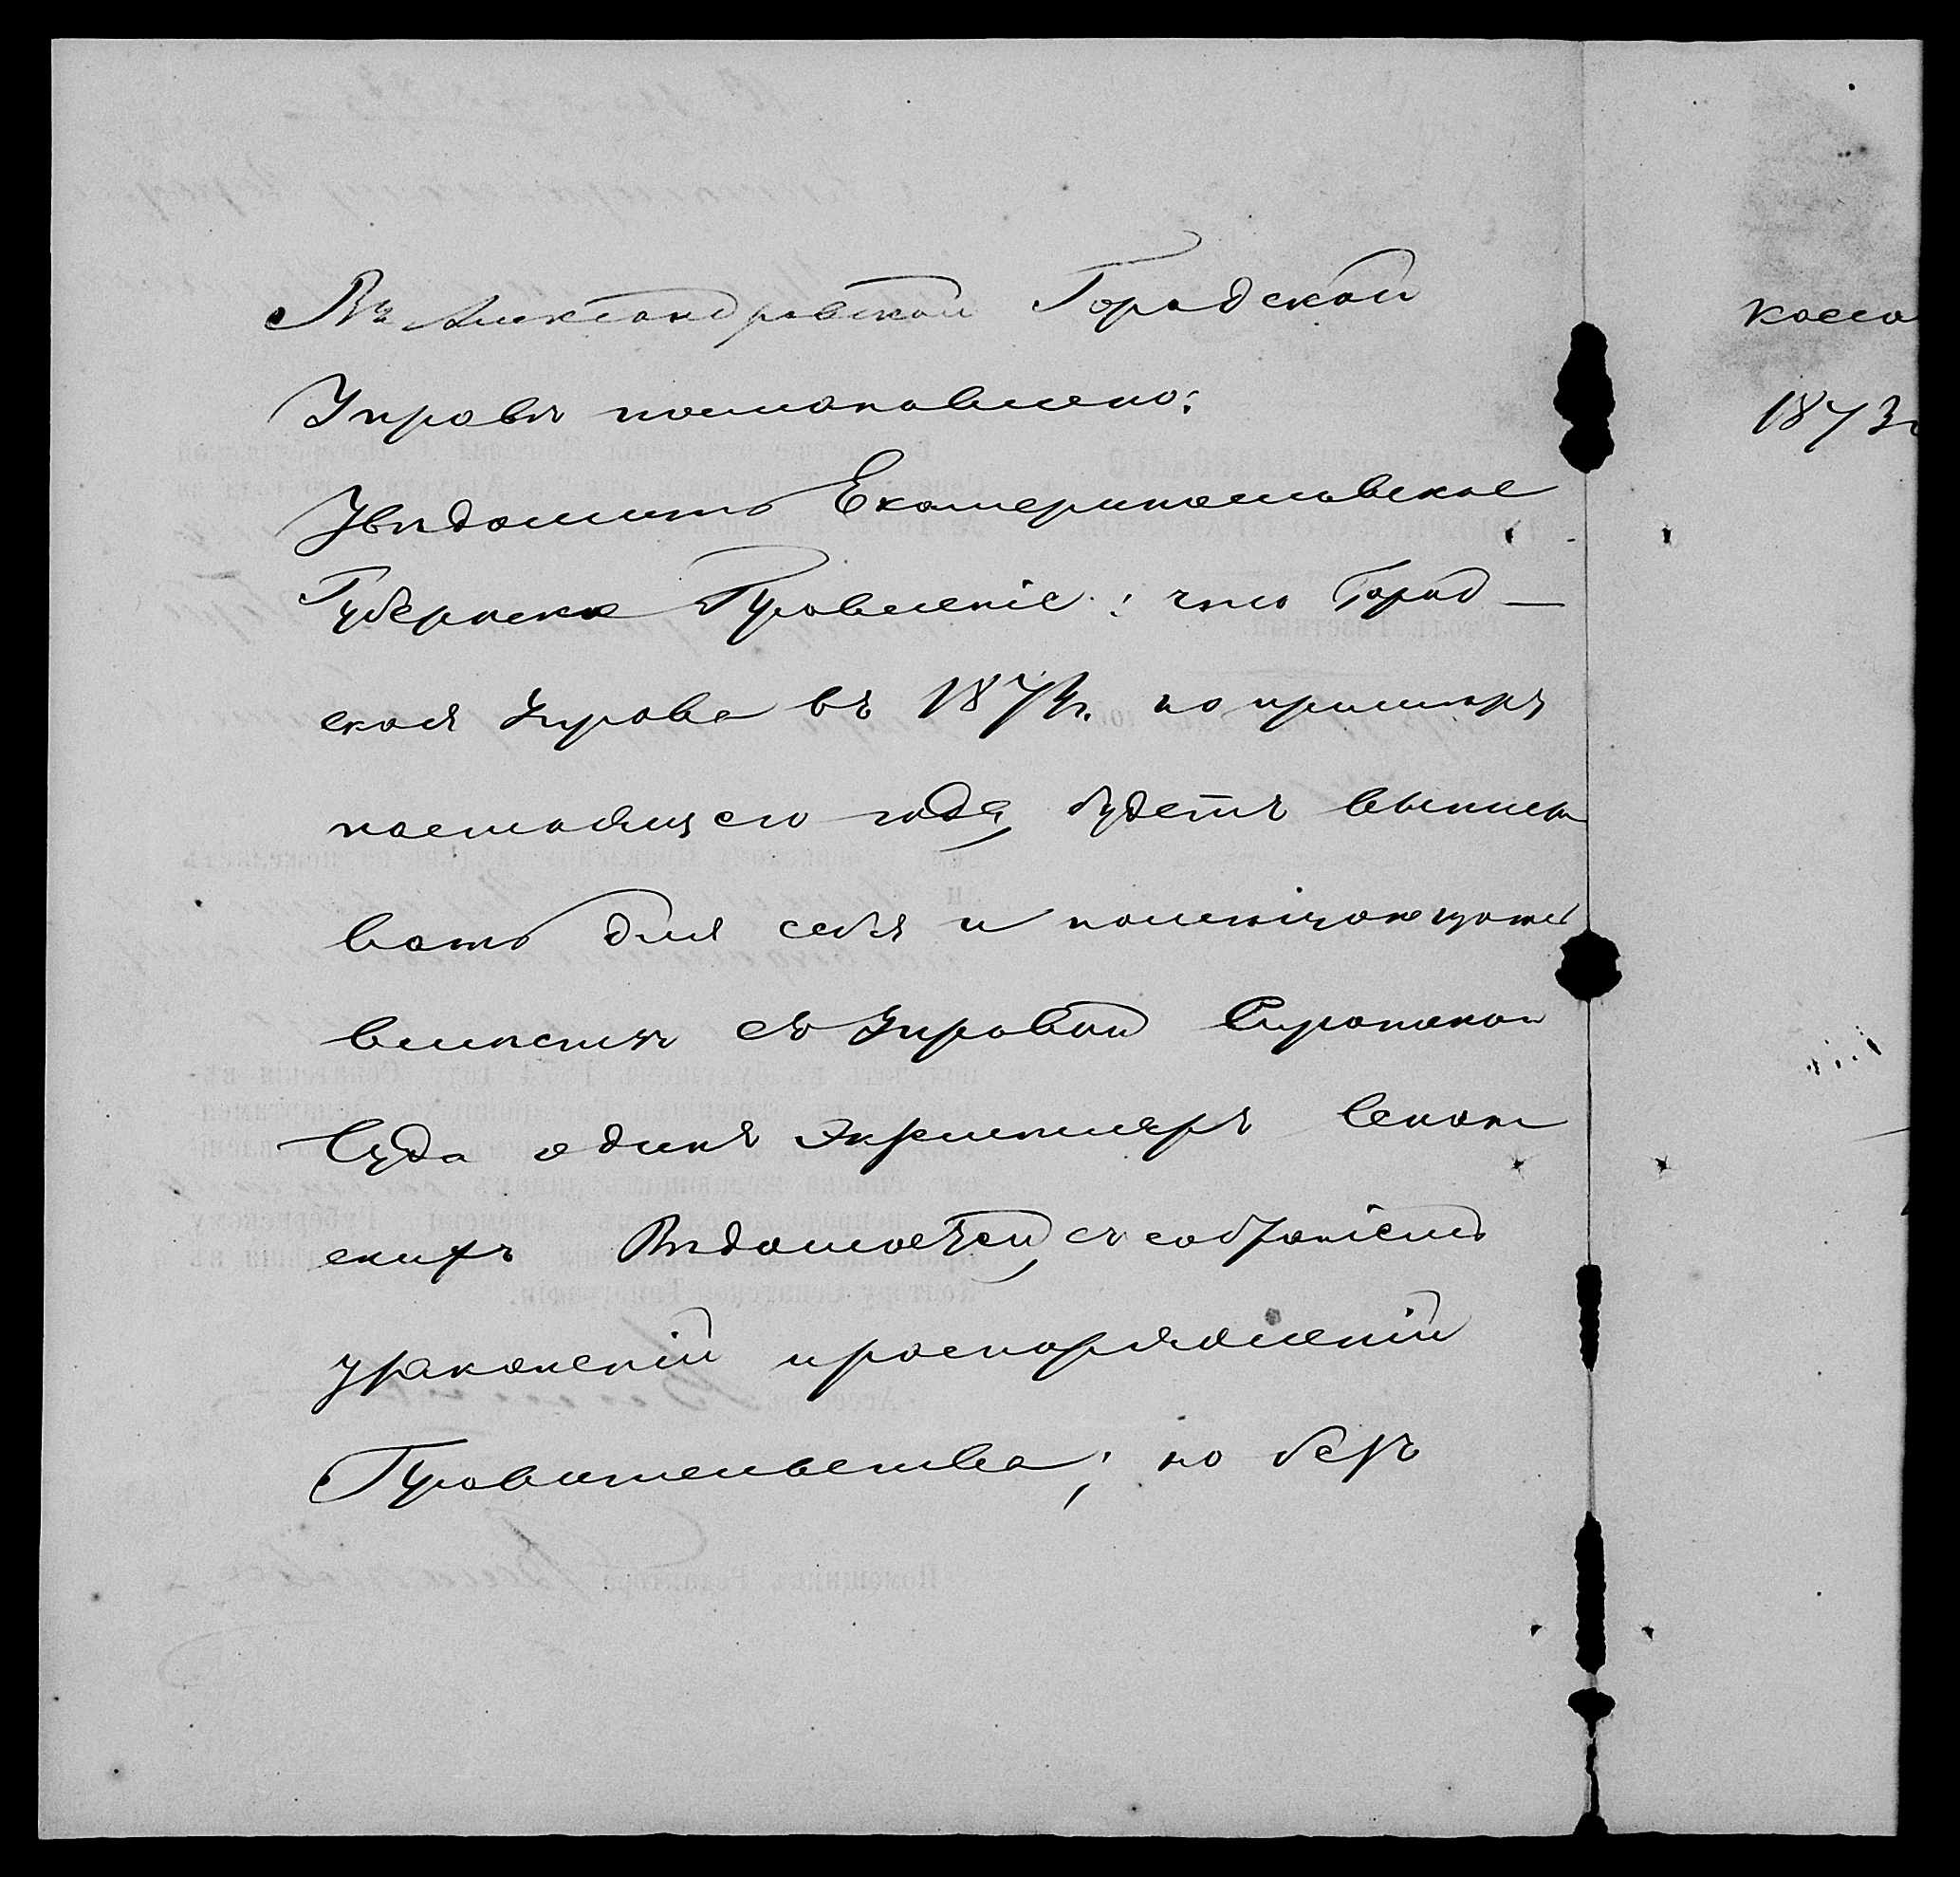 Въ Александровской Городской
Управѣ постановлено:
Увѣдомить Екатеринославское
Губернское Правленіе: что Город-
ская Управа въ 1874 г. по примѣру
настоящего года, будетъ выписы
вать для себя и помѣщающагося
вмѣстѣ съ Управой Сиротскаго
Суда одинъ экземпляръ Сенат
скихъ Вѣдомостей, съ собраніемъ
узаконеній и распоряженій
Правительства; но безъ
касса
1873